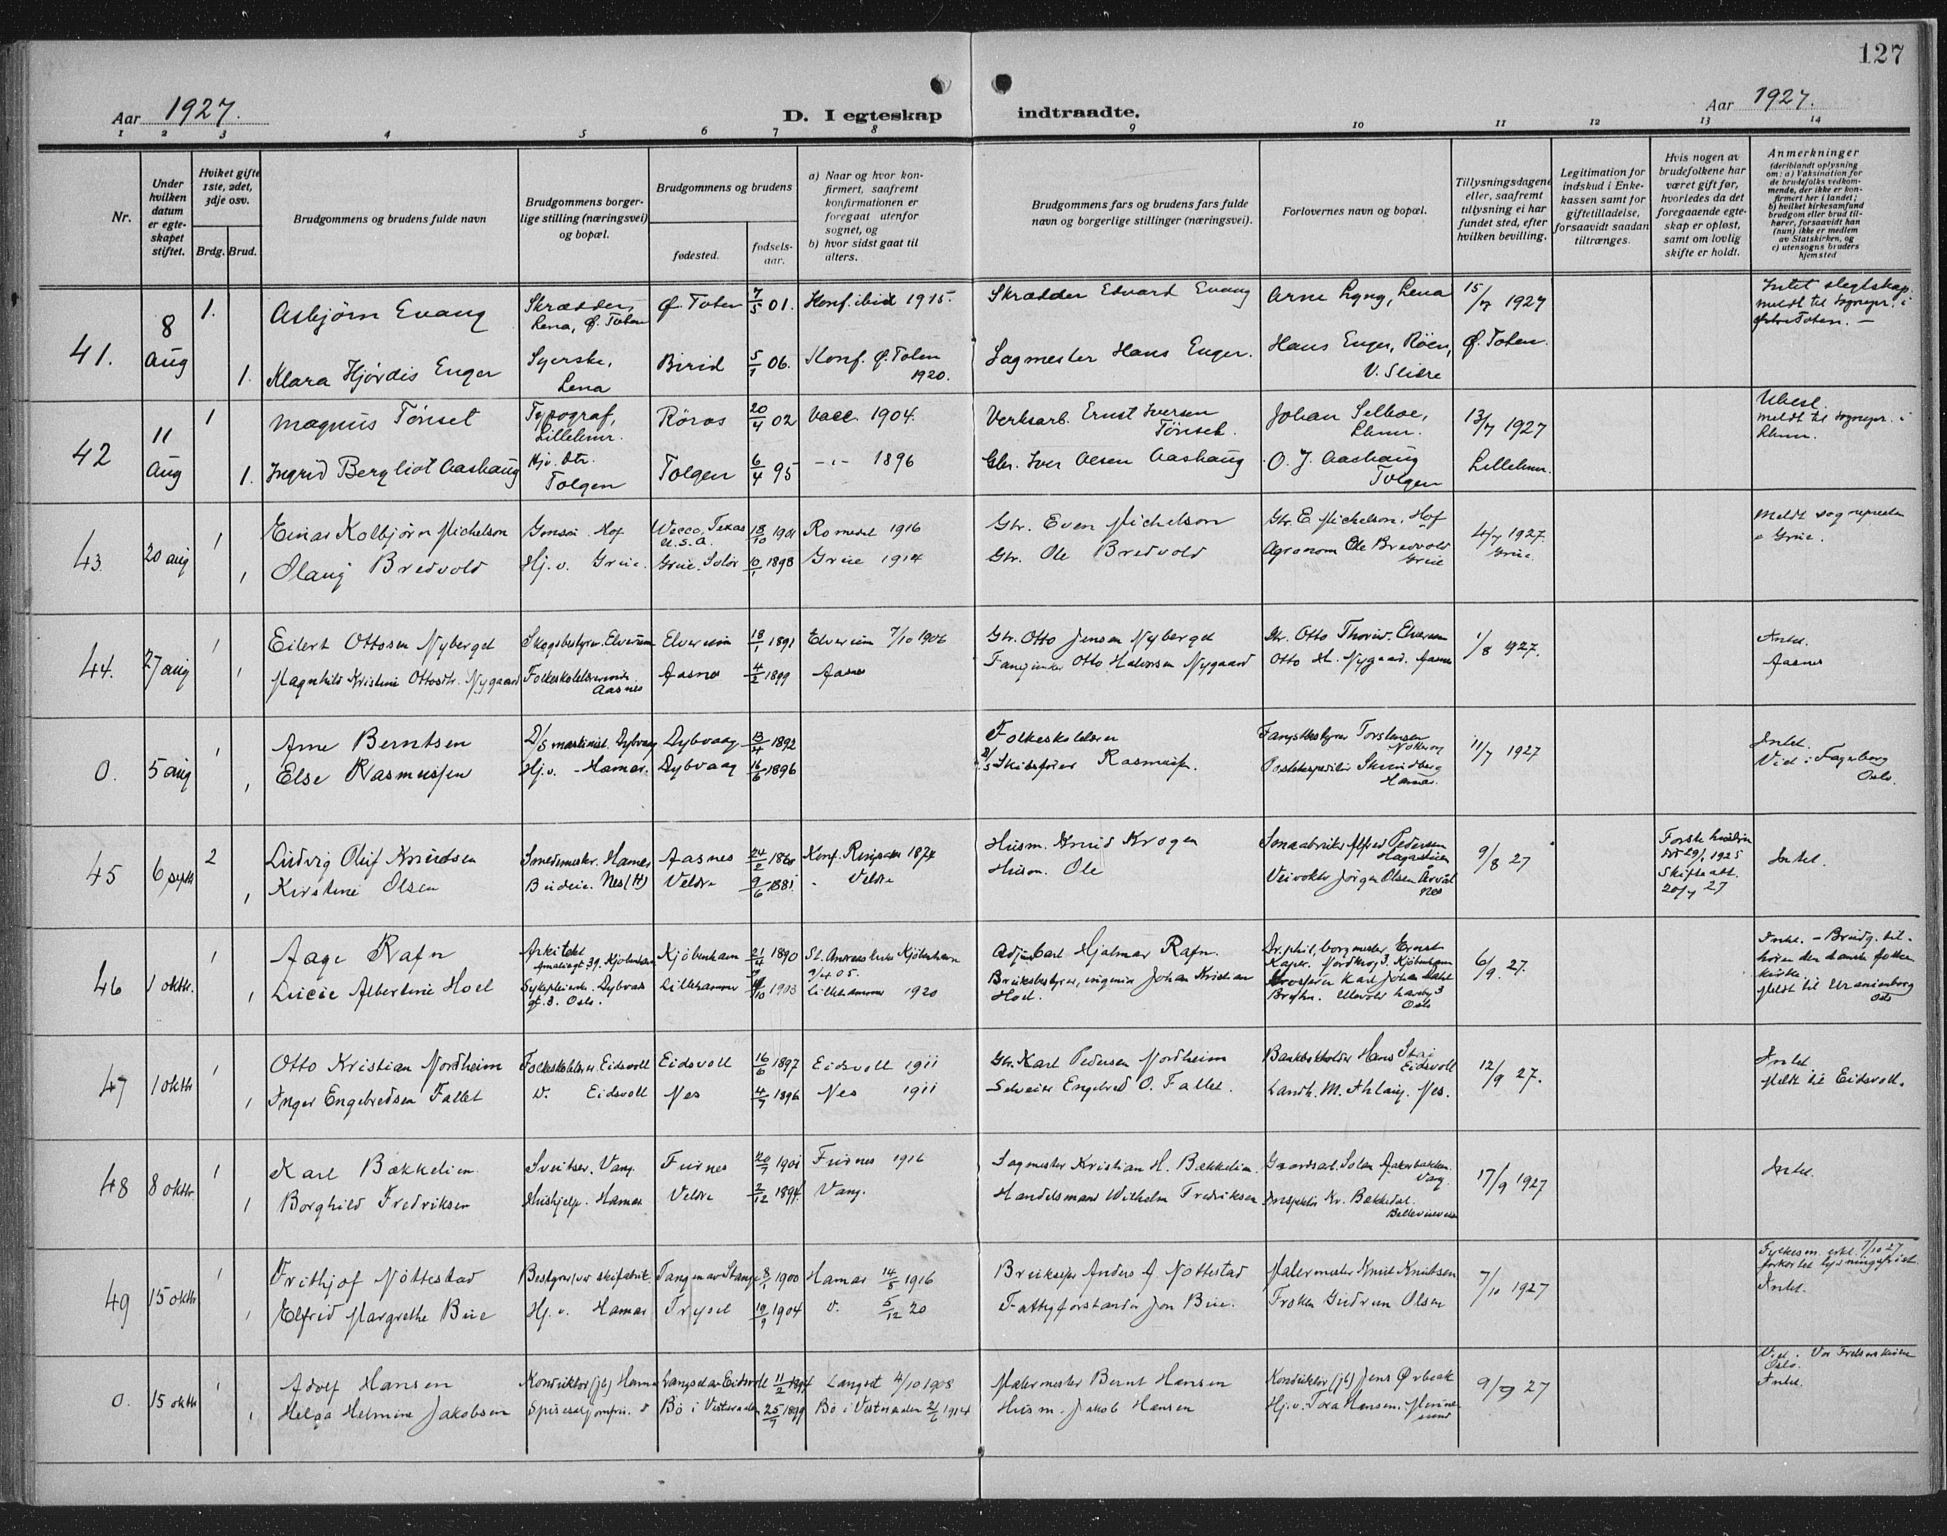 127
Aar 1927.
D. I egteskap indtraadte.
Aar 1927.
1 2 3 4 5 6 7 8 9 10 11 12 13 14
Nr.
Under hvilken datum er egteskapet stiftet.
Hviket gifte 1ste, 2det, 3dje osv.
Brdg. Brud.
Brudgommens og brudens fulde navn
Brudgommens borgerlige stilling (næringsvei) og bopæl.
Brudgommens og brudens
fødested.
fødselsaar.
a) Naar og hvor konfirmert, saafremt konfirmationen er foregaat utenfor sognet, og
b) hvor sidst gaat til alters.
Brudgommens fars og brudens fars fulde navn og borgerlige stillinger (næringsvei).
Forlovernes navn og bopæl.
Tillysningsdagene eller, saafremt tillysning ei har fundet sted, efter hvilken bevilling.
Legitimation for indskud i Enkekassen samt for giftetilladelse, forsaavidt saadan tiltrænges.
Hvis nogen av brudefolkene har været gift før, hvorledes da det foregaaende egteskap er opløst, samt om lovlig skifte er holdt.
Anmerkninger
(deriblandt oplysning om: a) Vaksination for de brudefolks vedkommende, der ikke er konfirmert her i landet;
b) hvilket kirkesamfund brudgom eller brud tilhører, forsaavidt han (hun) ikke er medlem av Statskirken, og
c) utensogns bruders hjemsted
41. 8 Aug
1. Asbjørn Evang Skrædder, Lena, Ø. Toten Ø. Toten 7/5 01. Konf. ibid 1915. Skrædder Edvard Evang Arne Lyng, Lena 15/7 1927 Intet slegtskap. meldt til sognepr. i Østre Toten. —
1. Klara Hjørdis Enger Syerske, Lena Birid 5/1 06. Konf. Ø. Toten 1920. Sagmester Hans Enger. Hans Enger, Røen, V. Slidre Ø. Toten.
42 11 Aug
1 Magnus Tønset Typograf, Lillehmr. Røros 20/4 02 Vacc. 1904. Verksarb. Ernst Iversen Tønset. Johan Selboe, Lhmr. 13/7 1927 Ubesl. meldt til sognepr. i Lhmr.
1. Ingrid Bergliot Aashaug Hjv. Dtr. Tolgen Tolgen 6/4 95 -"- 1896 Gbr. Iver Olsen Aashaug O. J. Aashaug Tolgen Lillehmr.
43 20 aug
1 Einar Kolbjørn Michelson Hof Texas U.S.A. 18/10 1901 Romedal 1916 Gbr. Even Michelson Gbr. E. Michelson, Hof 4/7 1927. Meldt
1 Olaug Bredvold Hj. v. Grue. Grue, Solør 10/1 1898 Grue 1914 Gbr. Ole Bredvold Agronom Ole Bredvold Grue Grue. Grue.
44. 27 aug
1 Eilert Ottosen Nyberget Skogsbestyrer, Elverum Elverum 18/1 1891 Elverum 7/10 1906 Gbr. Otto Jensen Nyberget Otto Elverum 1/8 1927. Intet.
1 Magnhild Kristine Ottosdtr. Nygaard Folkeskolelærerinde Aasnes Aasnes 4/2 1899 Aasnes Otto Halvorsen Nygaard Otto H. Nygaard. Aasnes Aasnes
0. 5 aug
1 Arne Berntsen Dybvaag Dybvaag 13/4 1892 Folkeskolelærer Torstensen Nøtterøy 11/7 1927 Intet. Vid i Fagerborg Oslo.
1 Else Rasmussen Hj. v. - Hamar. Dybvaag 16/6 1896 Skibsfører Rasmussen. Postekspeditør Strindberg Hamar.
45 6 septbr
2 Ludvig Oluf Knudsen Smedmester. Hamar Aasnes 24/2 1860 Konf. Ringsaker 1874 Husm. Knud Krogen Alfred Pedersen 9/8 27 Første hustru død 29/1 1925 Skifteatt. 20/7 27 Intet.
1 Kirstine Olsen Budeie. Nes (H) Veldre 9/6 1881 " Veldre Husm. Ole Veivokter Jørgen Olsen Nes
46 1 oktbr.
1 Aage Rafn Arkitekt Amaliegt 39. Kjøbenhavn Kjöbenhavn 21/4 1890 St. Andreas kirke Kjöbenhavn 9/4 05. Carl Hjalmar Rafn. Dr. phil, borgmester, Ernst Kaper. Kjöbenhavn 6/9. 27. Intet. - Brudg. tilhører den danske folkekirke. Meldt til Uranienborg Oslo
1 Lucie Albertine Hoel Dybvadsgt. 3. Oslo. Lillehammer 1903 Lillehammer 1920 Bruksbestyrer, ingeniør Johan Kristian Hoel. Karl Johan Dahl Bryhn. Oslo
47 1 oktbr
1 Otto Kristian Nordheim Folkeskolelærer, Eidsvoll Eidsvoll 16/6 1897 Eidsvoll 1911 Gbr. Karl Pedersen Nordheim Bankbokholder Hans Stai Eidsvoll 12/9 27. Intet. Meldt til Eidsvoll.
1 Inger Engebredsen Fallet D. Eidsvoll Nes 4/9 1896 Nes 1911 Selveier Engebred O. Fallet. Landh. M. Ahlaug. Nes.
48 8 oktbr.
1 Karl Bækkelien Sveitser. Vang. Furnes 20/7 1901 Furnes 1916 Sagmester Kristian H. Bækkelien Vang. 17/9 1927 Intet.
1 Borghild Fredriksen Hushjelp. Hamar Veldre 2/12 1894 Vang. Handelsmand Wilhelm Fredriksen Inspektør Kr. Bakkedal.
49 15 oktbr
1 Frithjof Nöttestad Bestyrer skifabrik Tangen av Stange 8/1 1900 Hamar 14/5 1916 Brukseier Anders A. Nöttestad Malermester Knut Knutsen 7/10 1927 Fylkesm. erkl. 7/10 27 forkortet lysningsfrist. Intet.
1 Elfrid Margrethe Bue Hj. v. Hamar Trysil 19/9 1904 D. 5/12 20 Fattigforstander Jon Bue. Frøken Gudrun Olsen
0. 15 oktbr
1 Adolf Hansen Konduktör (jb) Hamar Langset av Eidsvoll 11/2 1894 Langset 4/10 1908 Malermester Bernt Hansen Konduktör (jb) Jens Ørbæk 9/9 27 Vid. Vor Frelsers kirke Oslo. Intet.
1 Helga Helmine Jakobsen Spisesaljomfru. D Bö i Vesteraalen 25/9 1899 Bö i Vesteraalen 21/6 1914 Husm. Jakob Hansen Hj. v. Tora Hansen.